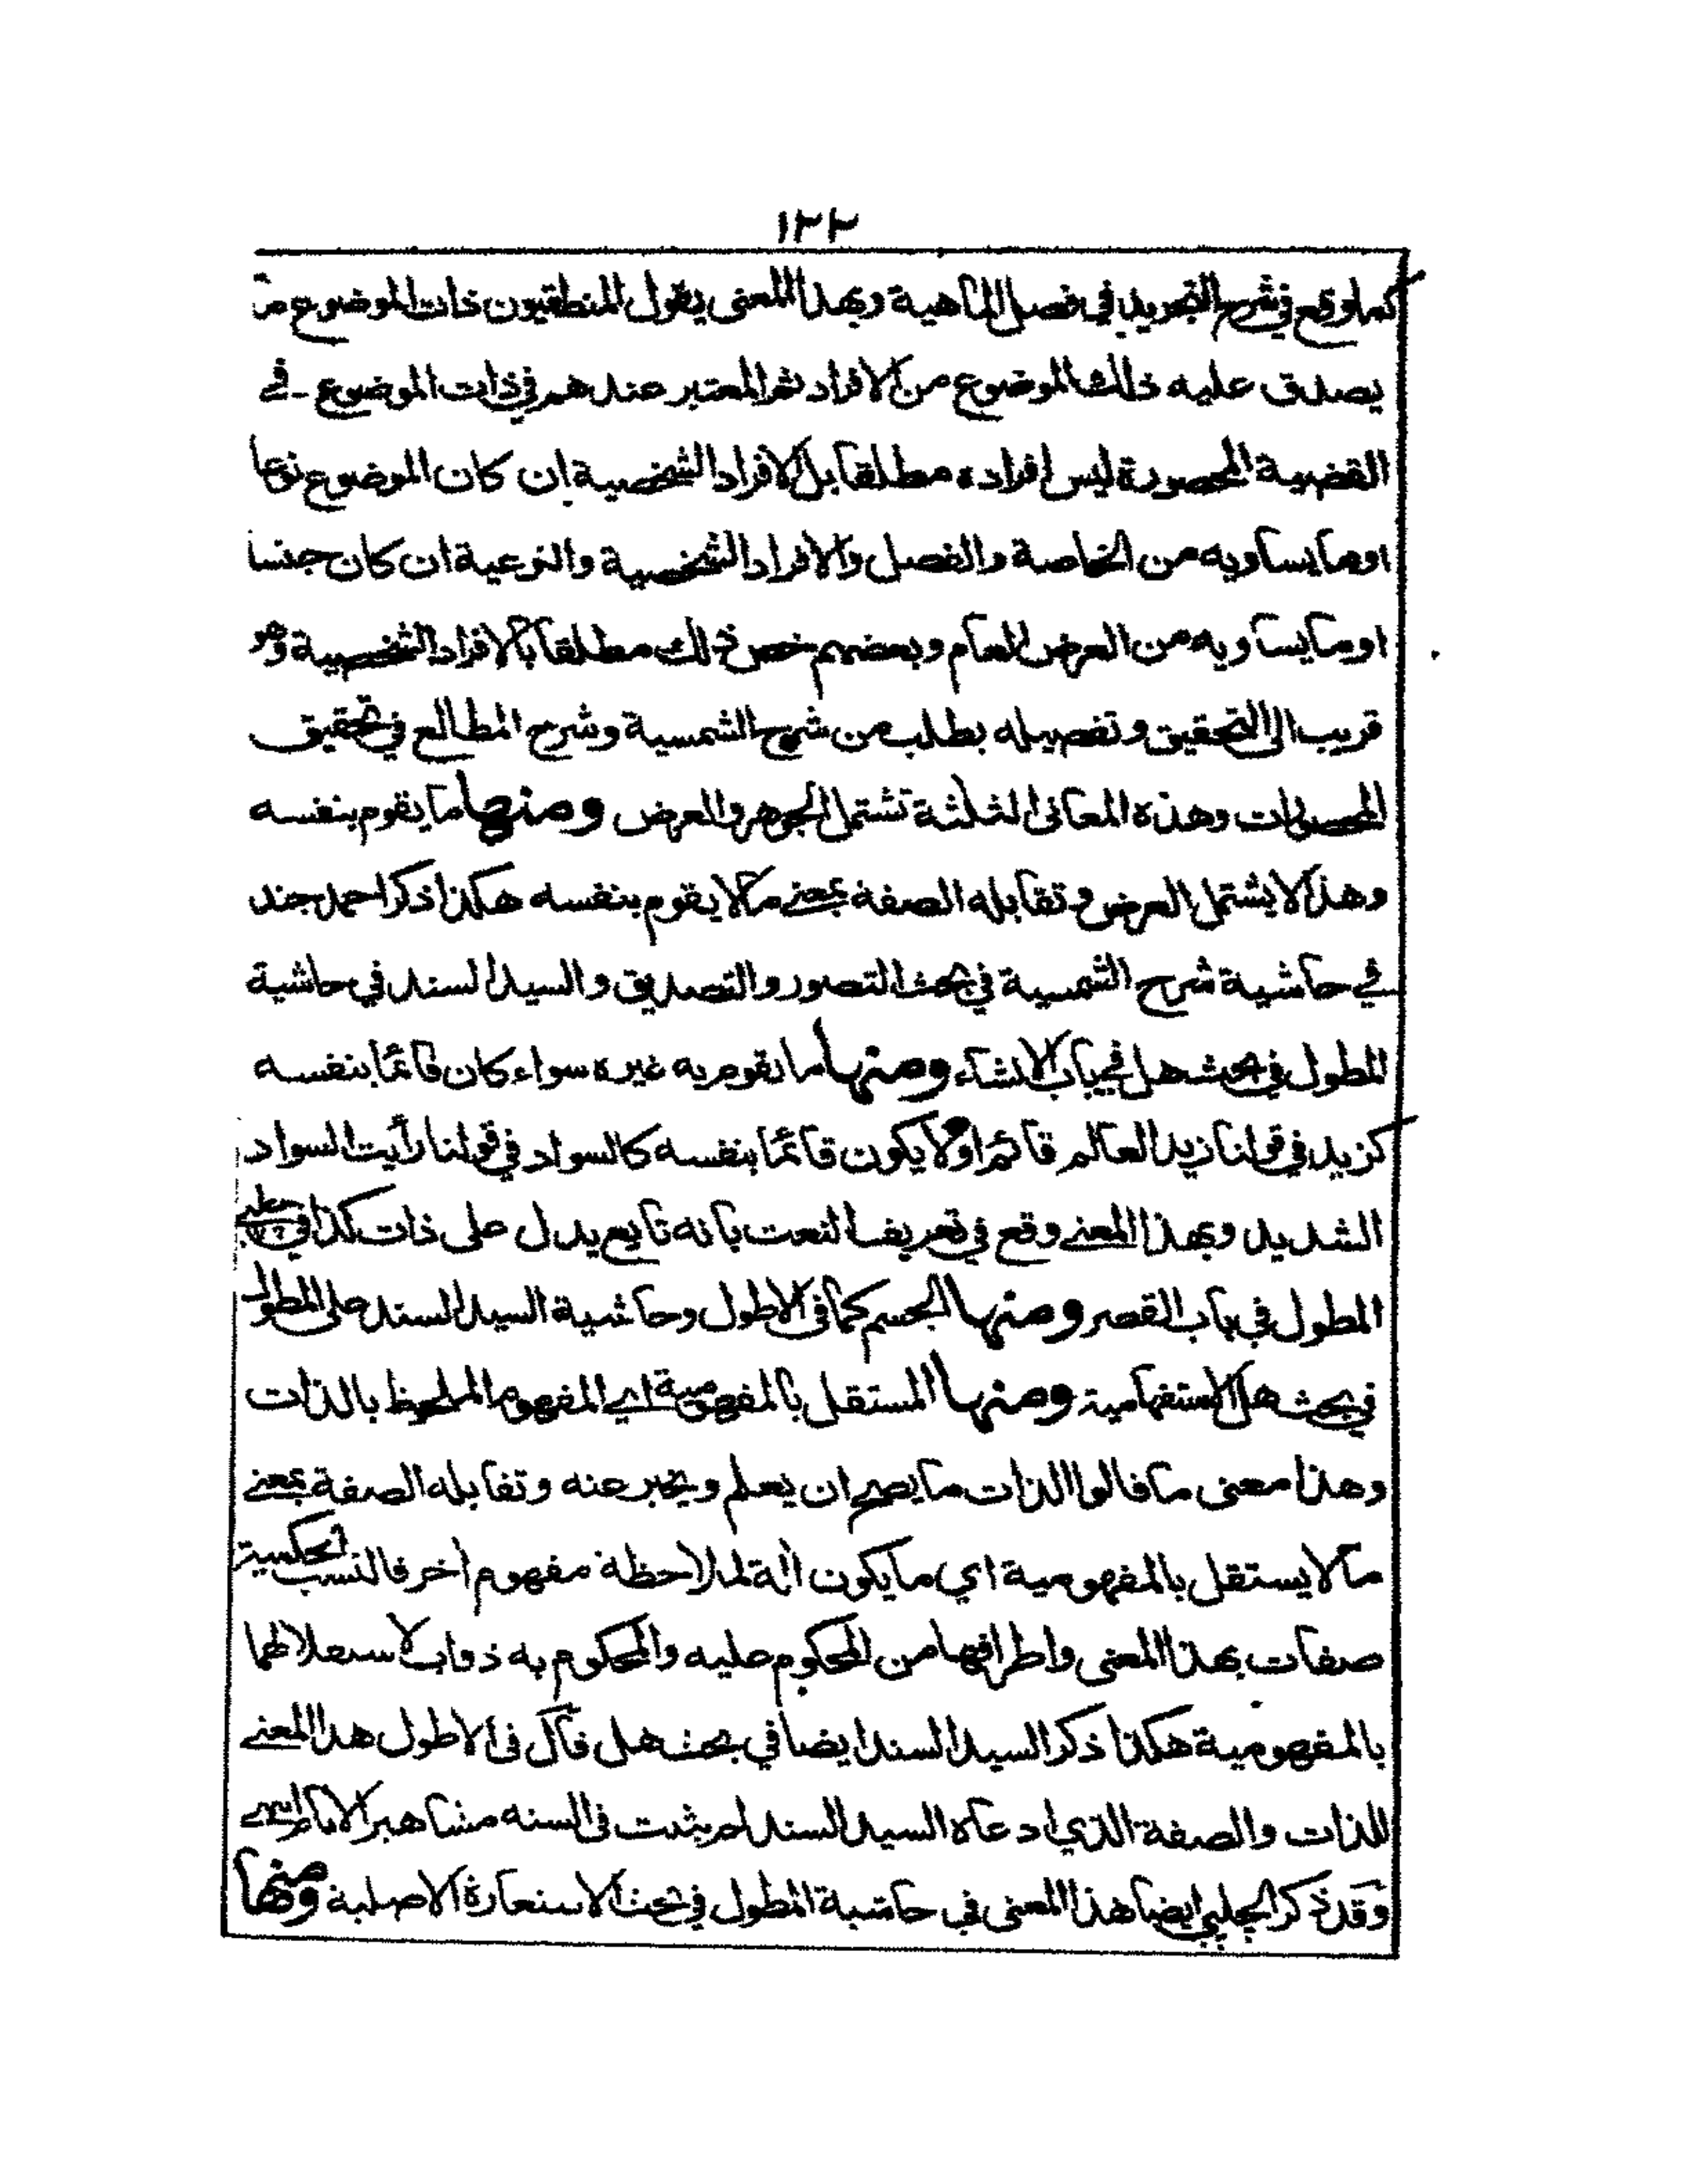 ١٢٢
كما وقع في شرح التجريد في فصل الماهية وبهذا المعنى يقول المنطقيون ذات الموضوع ما
يصدق عليه ذلك الموضوع من الافراد ثم المعتبر عندهم في ذات الموضوع في
القضية المحصورة ليس افراده مطلقا بل الافراد الشخصية ان كان الموضوع نوعا
او ما يساويه من الخاصة والفصل والافراد الشخصية والنوعية ان كان جنسا
او ما يساويه من العرض العام وبعضهم خص ذلك مطلقا بالافراد الشخصية وهو
قريب الى التحقيق وتفصيله يطلب من شرح الشمسية وشرح المطالع في تحقيق
المحصورات وهذه المعاني الثلثة تشتمل الجوهر والعرض ومنها ما يقوم بنفسه
وهذا لا يشتمل العرض وتقابله الصفة بمعنى ما لا يقوم بنفسه هكذا ذكر احمد جند
في حاشية شرح الشمسية في بحث التصور والتصديق والسيد السند في حاشية
المطول في بحث هل في باب الانشاء ومنها ما يقوم به غيره سواء كان قائما بنفسه
كزيد في قولنا زيد العالم قائم اولا يكون قائما بنفسه كالسواد في قولنا رأيت السواد
الشديد وبهذا المعنى وقع في تعريف النعت بانه تابع يدل على ذات كذا في
المطول في باب القصر ومنها الجسم كما في الاطول وحاشية السيد السند على المطول
في بحث هل الاستفهامية ومنها المستقل بالمفهومية اي المفهوم الملحوظ بالذات
وهذا معنى ما قالوا الذات ما يصح ان يعلم ويخبر عنه وتقابله الصفة بمعنى
ما لا يستقل بالمفهومية اي ما يكون آلة لملاحظة مفهوم آخر فالنسب الحكمية
صفات بهذا المعنى واطرافها من المحكوم عليه والمحكوم به ذوات لاستقلالهما
بالمفهومية هكذا ذكر السيد السند ايضا في بحث هل قال في الاطول هذا المعنى
للذات والصفة الذي ادعاه السيد السند لم يثبت في السنه مشاهير الانام انتهى
وقد ذكر الچلپي ايضا هذا المعنى في حاشية المطول في بحث الاستعارة الاصلية ومنها